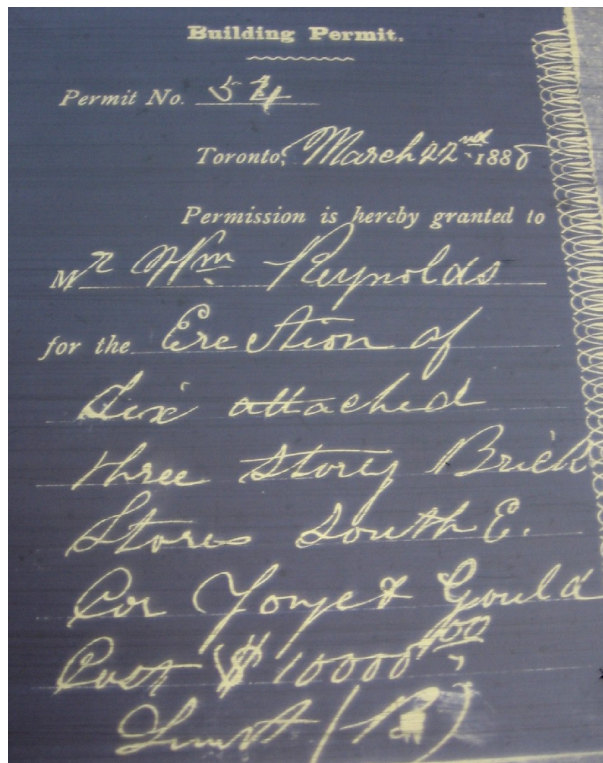 Building Permit.
Permit No. 54
Toronto, March 22nd 1888
Permission is hereby granted to
Mr Wm Reynolds
for the Erection of
Six attached
three Story Brick
Stores South E.
Cor Yonge & Gould
Cost $10000.00
Limit (B)